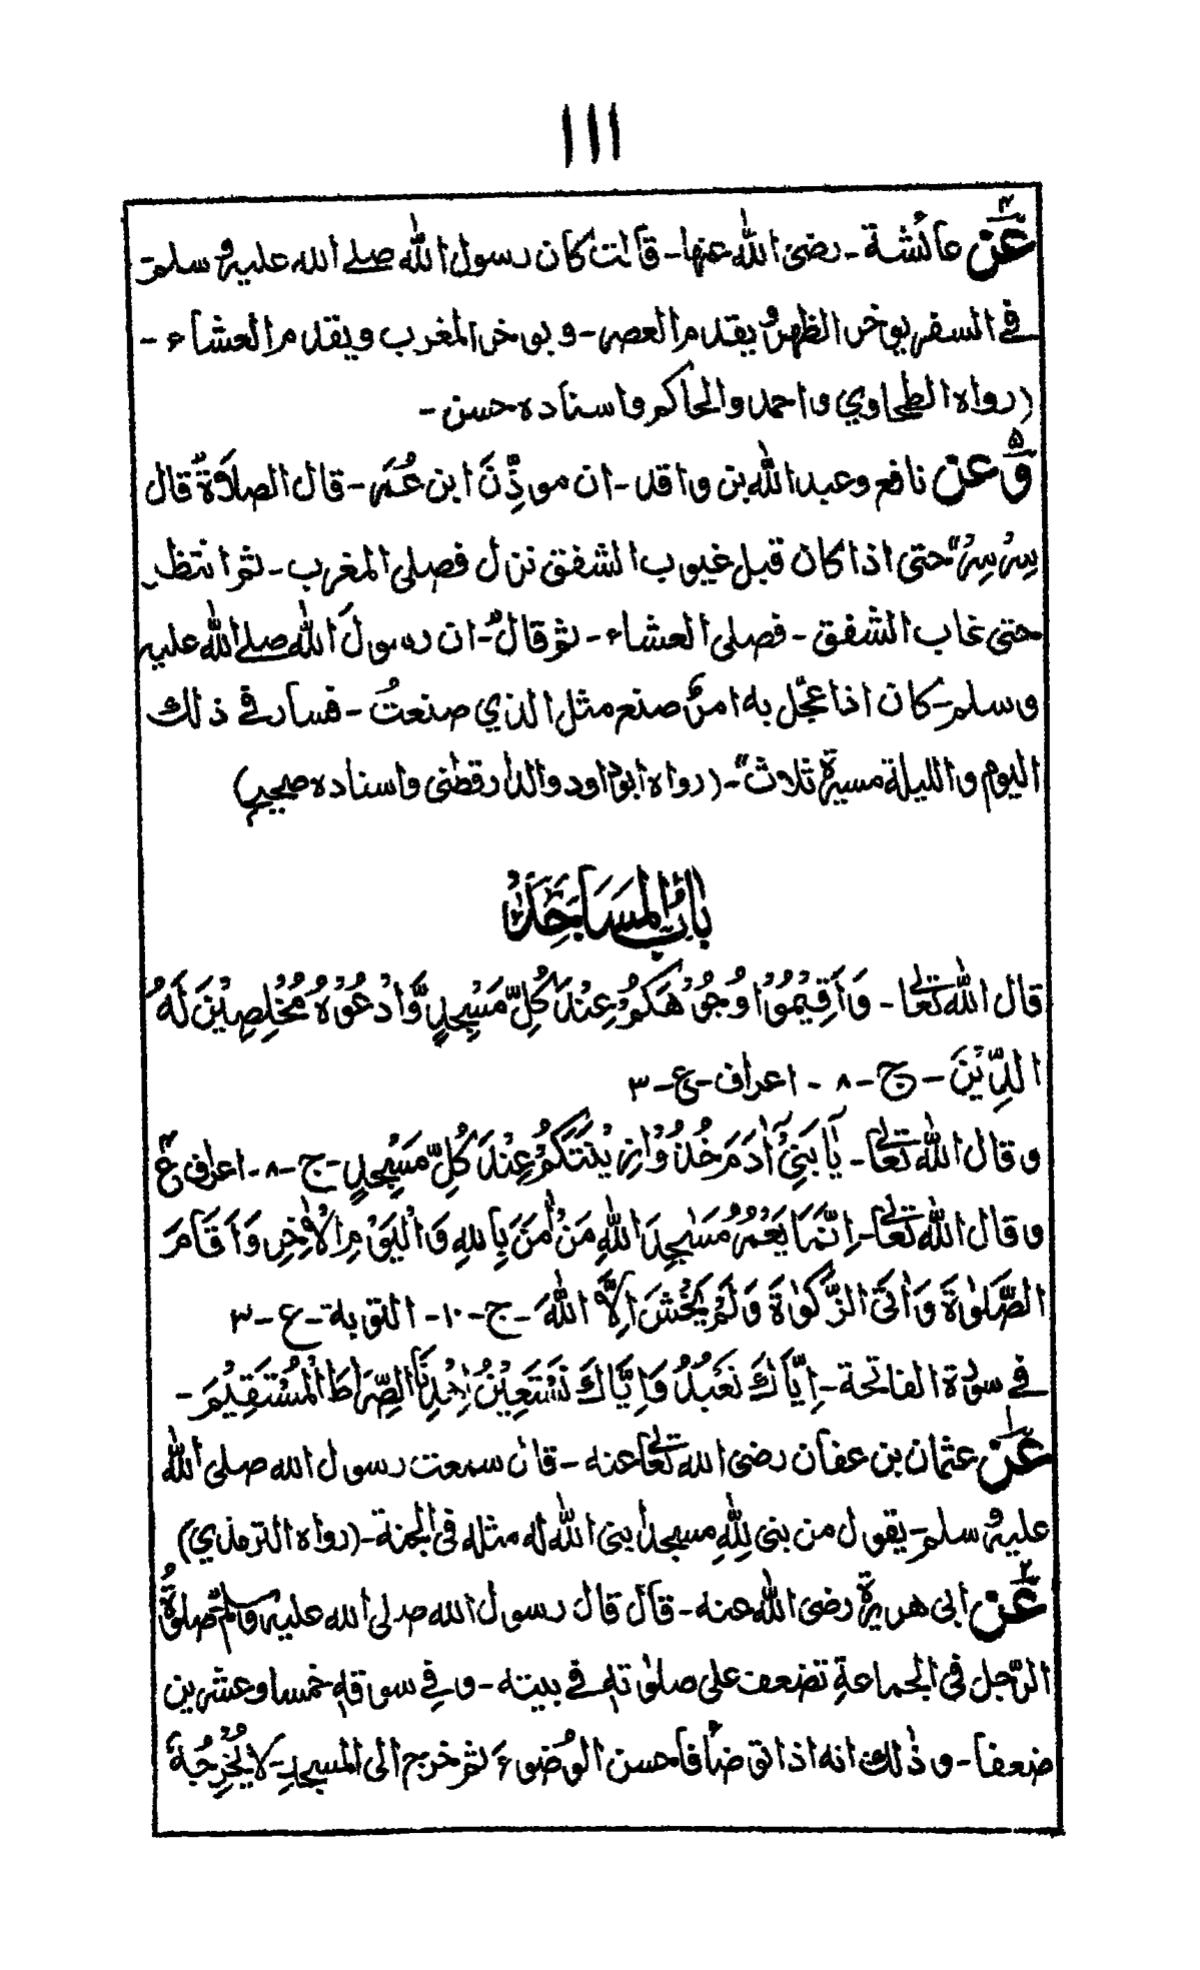 ١١١
٤ عن عائشة ـ رضى الله عنها ـ قالت كان رسول الله صلے الله عليه و سلم ـ
فے السفر يوخر الظهر و يقدم العصر ـ و يوخر المغرب و يقدم العشاء ـ
(رواه الطحاوي و احمد و الحاكم و اسناده حسن ـ
٥ و عن نافع و عبد الله بن واقد ـ ان موذِّنَ ابن عُمَر ـ قال الصلاةُ قال
سِرْ سِرْ" حتى اذا كان قبل غيوب الشفق نزل فصلى المغرب ـ ثم انتظر
حتى غاب الشفق ـ فصلى العشاء ـ ثم قال"ـ ان رسولَ الله صلے الله عليه
و سلم ـ كان اذا عجّل به امرٌ صنع مثل الذي صنعتُ ـ فسار فے ذلك
اليوم و الليلة مسيرة ثلاث" ـ (رواه ابو داود و الدار قطنى و اسناده صحيح)
بابُ المَسَاجِدِ
قال الله تعالے ـ وَ اَقِيْمُوْا وُجُوْهَكُمْ عِنْدَ كُلِّ مَسْجِدٍ وَّ ادْعُوْهُ مُخْلِصِيْنَ لَهُ
الدِّيْنَ ـ ج ـ ٨ ـ اعراف ـ ع ـ ٣
و قال الله تعالے ـ يَا بَنِيْٓ اٰدَمَ خُذُوْا زِيْنَتَكُمْ عِنْدَ كُلِّ مَسْجِدٍ ـ ج ـ ٨ ـ اعراف ع ٣
و قال الله تعالے ـ اِنَّمَا يَعْمُرُ مَسٰجِدَ اللهِ مَنْ اٰمَنَ بِاللهِ وَ الْيَوْمِ الْاٰخِرِ وَ اَقَامَ
الصَّلوٰةَ وَ اٰتَى الزَّكوٰةَ وَ لَمْ يَخْشَ اِلَّا اللهَ ـ ج ـ ١٠ ـ التوبة ـ ع ـ ٣
فے سورة الفاتحة ـ اِيَّاكَ نَعْبُدُ وَ اِيَّاكَ نَسْتَعِيْنُ اِهْدِنَا الصِّرَاطَ الْمُسْتَقِيْمَ ـ
١ عن عثمان بن عفان رضى الله تعالے عنه ـ قال سمعت رسول الله صلى الله
عليه و سلم ـ يقول من بنى لِلّٰهِ مسجدا بنى الله له مثله فى الجنة ـ (رواه الترمذي)
٢ عن ابى هريرة رضى الله عنه ـ قال قال رسول الله صلى الله عليه و سلم صلوةُ
الرّجل فى الجماعةِ تضعف على صلوٰته فے بيته ـ و فِے سوقهٖ خمسا و عشرين
ضعفا ـ و ذٰلك انه اذا توضأ فاحسن الوُضوءَ ثم خرج الى المسجدِ ـ لا يُخْرِجُهٗ